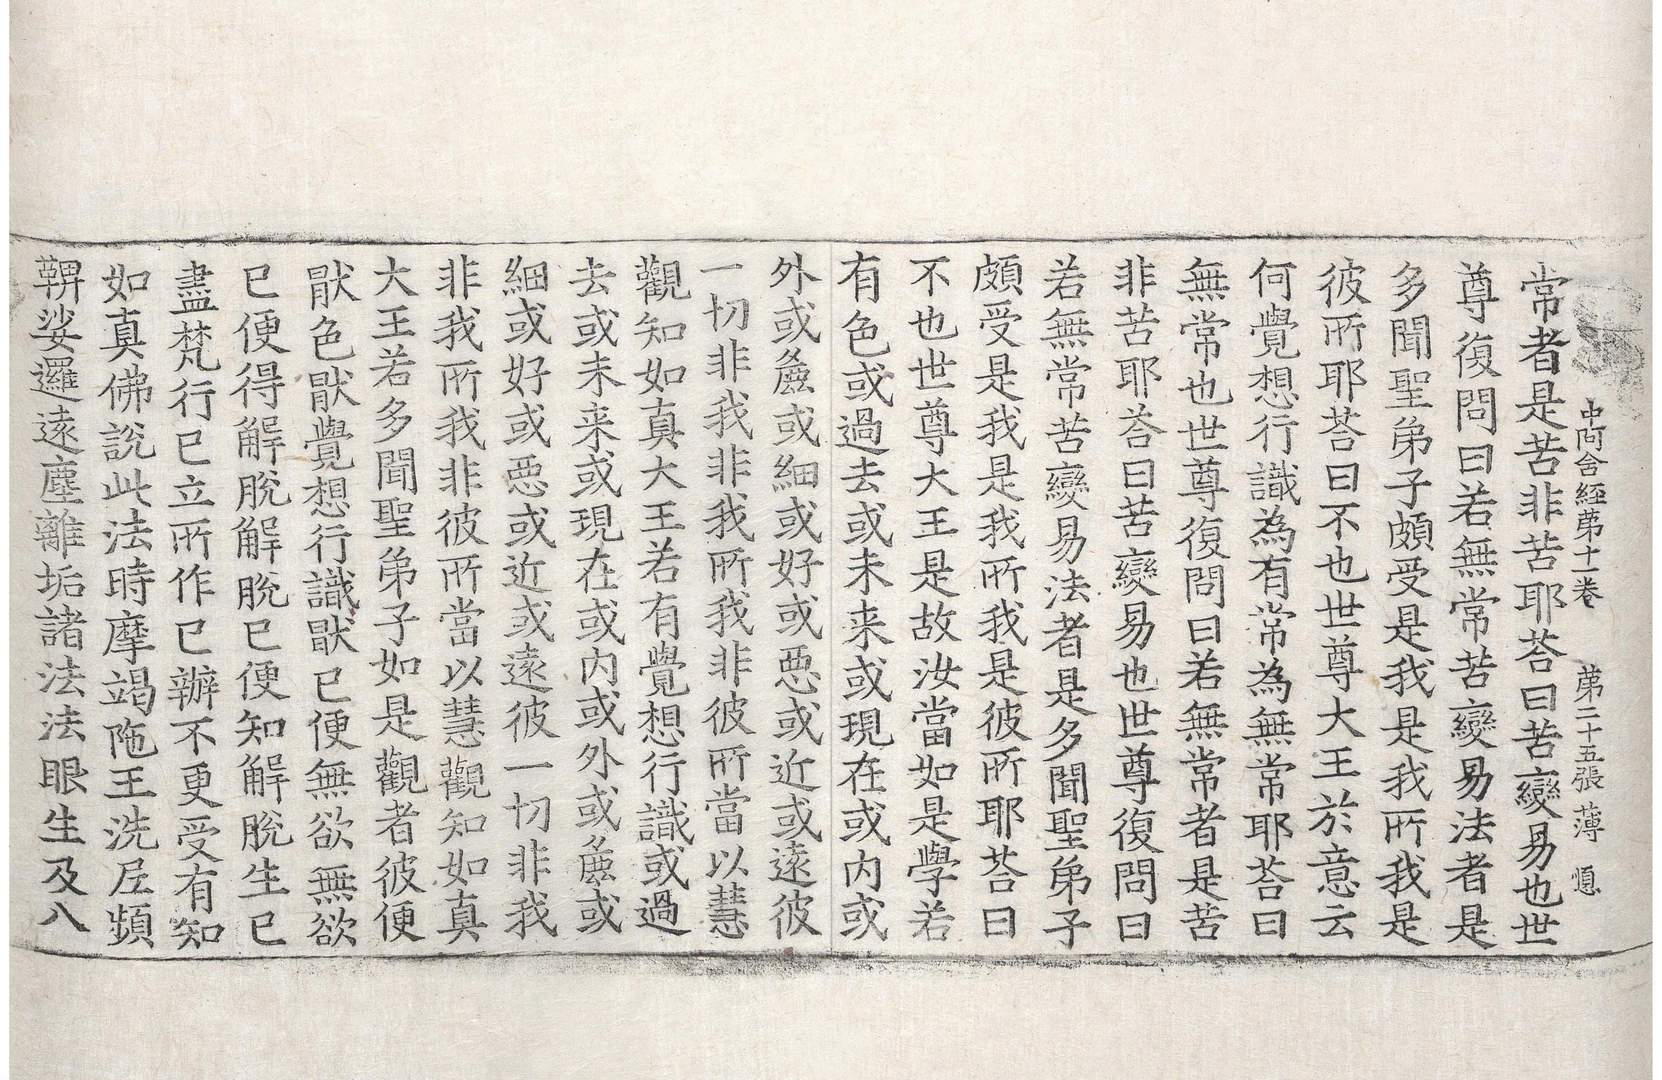 中阿含経苐十一卷　苐二十五張　薄　愼
常者是苦非苦耶荅曰苦變易也世
尊復問曰若無常苦變易法者是
多聞聖弟子頗受是我是我所我是
彼所耶荅曰不也世尊大王於意云
何覺想行識為有常為無常耶荅曰
無常也世尊復問曰若無常者是苦
非苦耶荅曰苦變易也世尊復問曰
若無常苦變易法者是多聞聖弟子
頗受是我是我所我是彼所耶荅曰
不也世尊大王是故汝當如是學若
有色或過去或未来或現在或内或
外或麁或細或好或惡或近或遠彼
一切非我非我所我非彼所當以慧
觀知如真大王若有覺想行識或過
去或未来或現在或内或外或麁或
細或好或惡或近或遠彼一切非我
非我所我非彼所當以慧觀知如真
大王若多聞聖弟子如是觀者彼便
猒色猒覺想行識猒已便無欲無欲
已便得解脫解脫已便知解脫生已
盡梵行已立所作已辦不更受有知
如真佛說此法時摩竭陁王洗尼頻
鞞娑邏遠塵離垢諸法法眼生及八